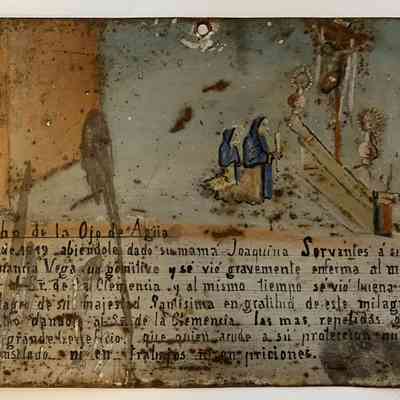 de la Ojo de Agua
de 1819 abiendole dado su mamá Joaquina Servantes á su
Vega un gomitivo y se vió gravemente enferma al m
de la Clemencia y al mismo tiempo se vió buena
de su majestad Santisima en gratitud de este milag
dando al Sr. de la Clemencia las mas repetidas
grande que quien acude a su proteccion nu
ni en trabajos ni en priciones.